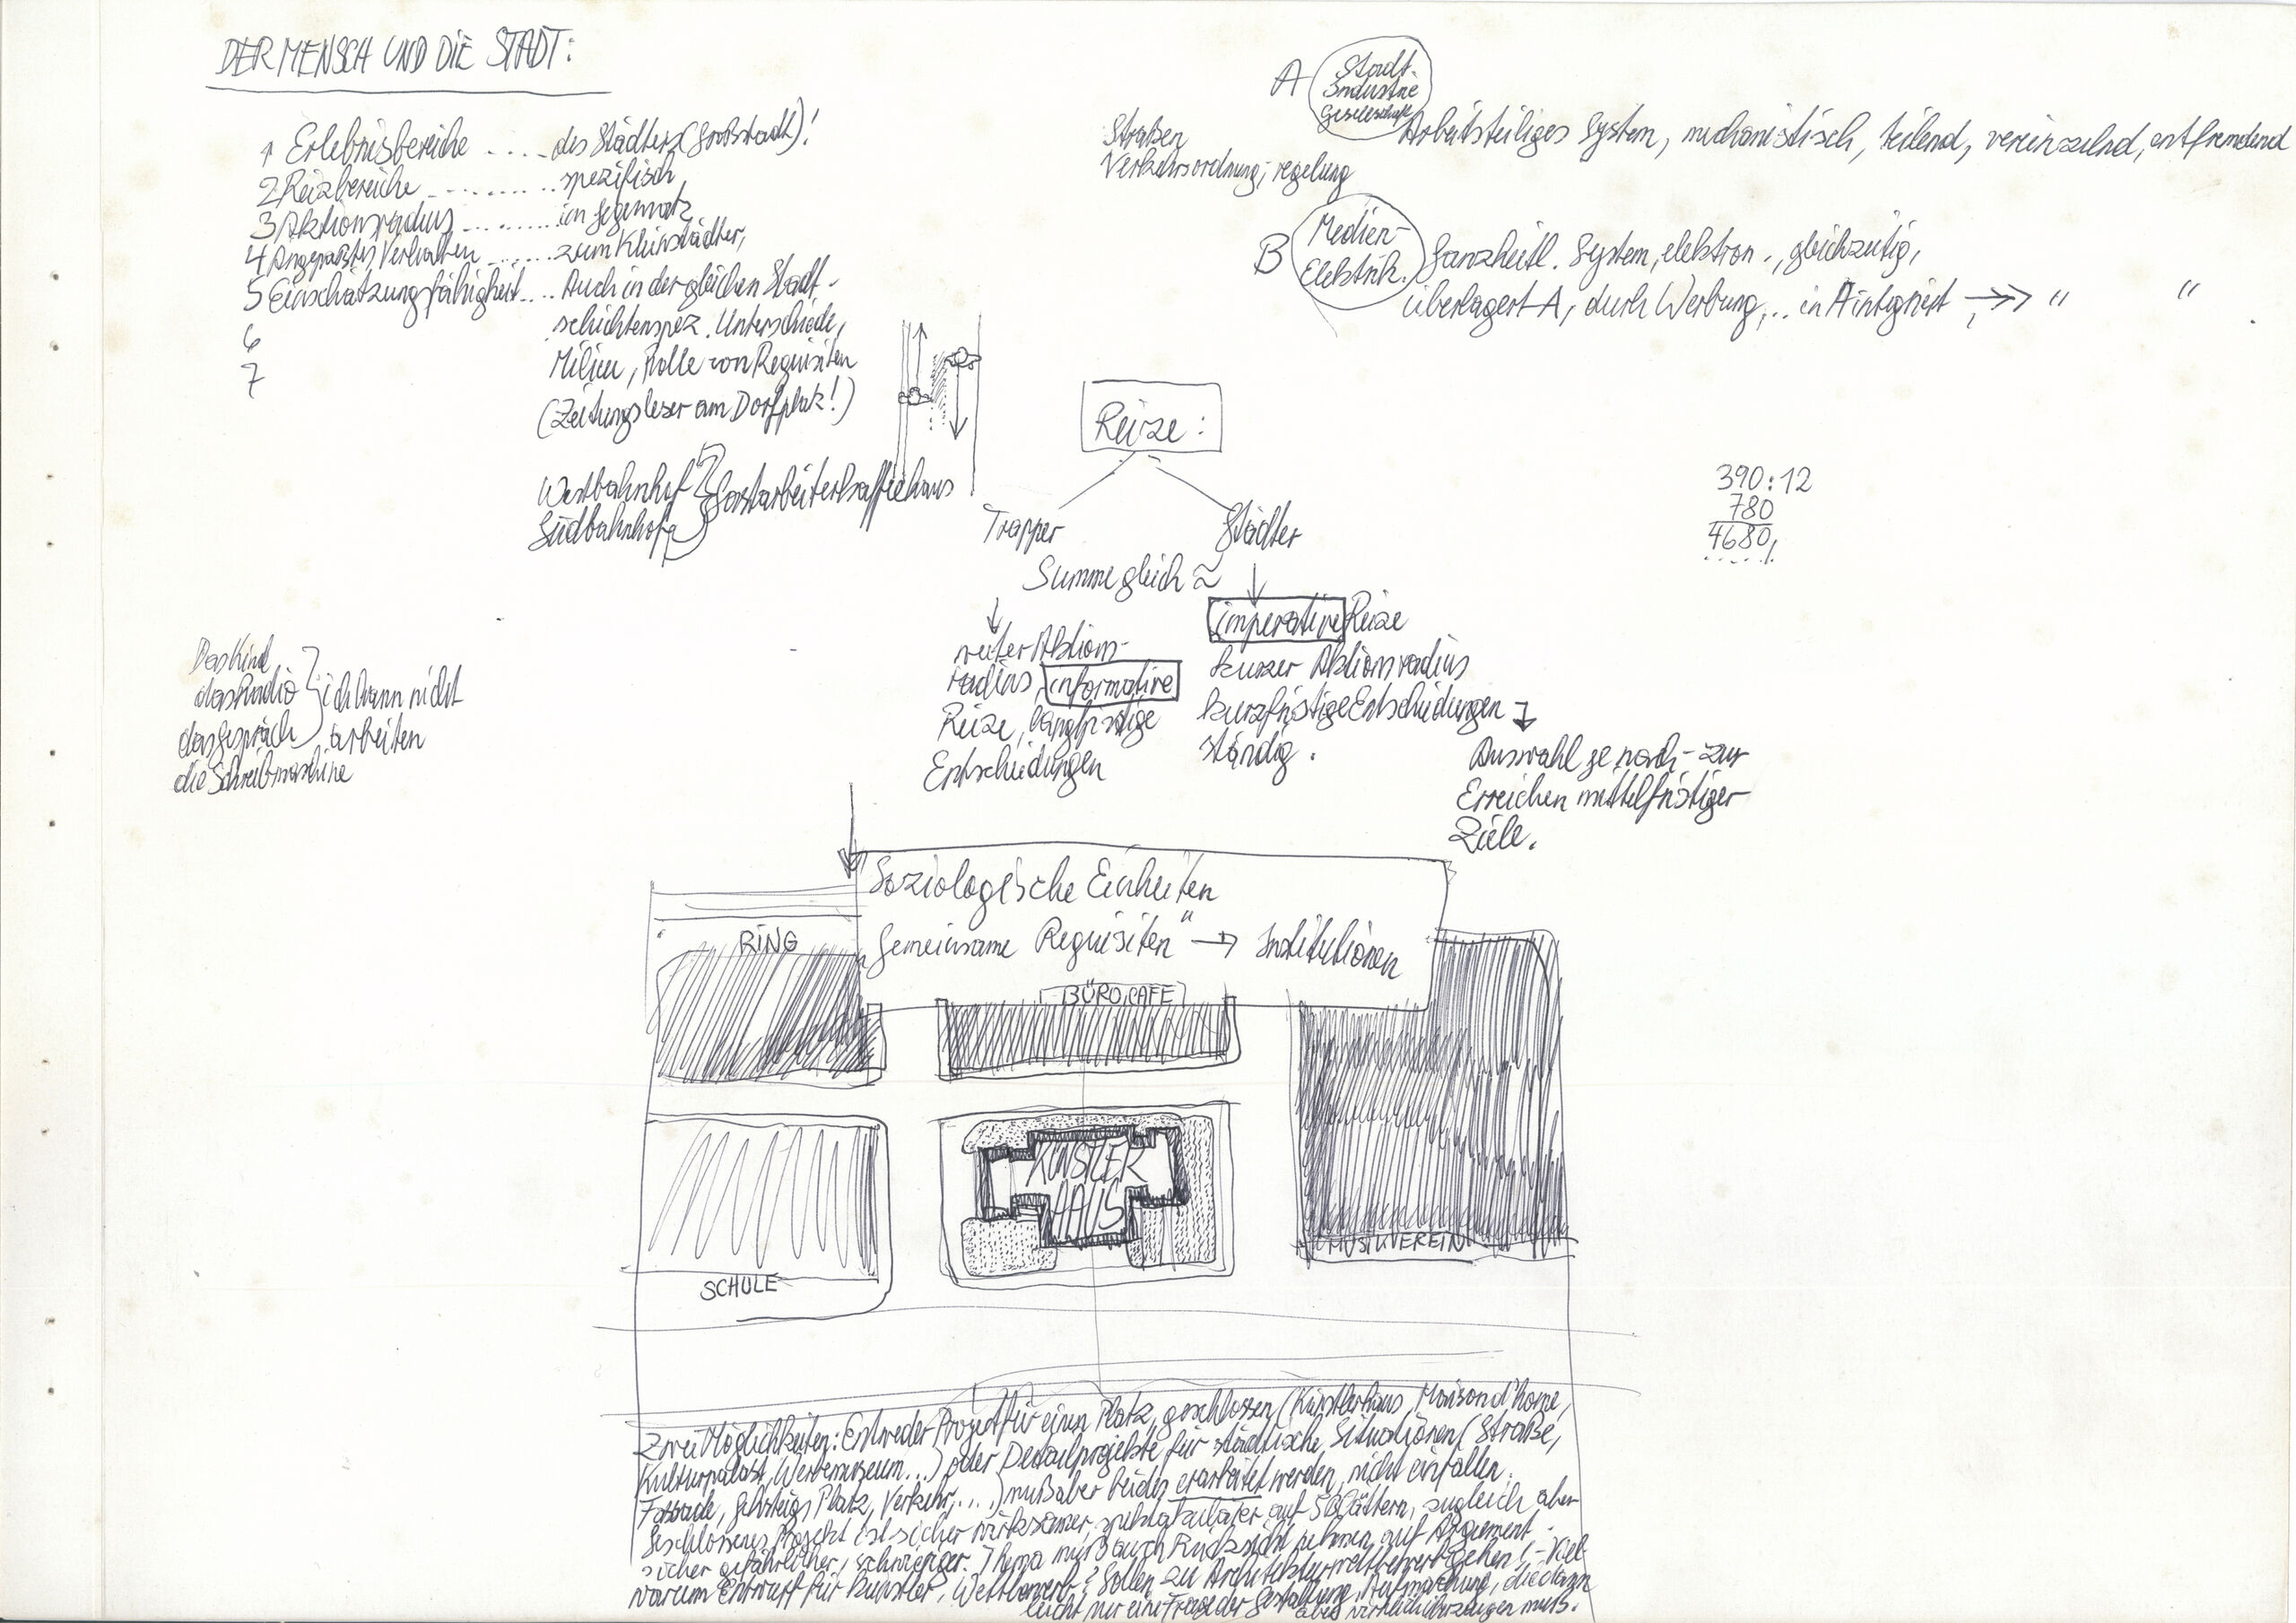 DER MENSCH UND DIE STADT:
1 Erlebnisbereiche .... des Städters (Großstadt)!
2 Reizbereiche .......... spezifisch,
3 Aktionsradius .......... im Gegensatz
4 Angepaßtes Verhalten ....... zum Kleinstädter,
5 Einschätzungsfähigkeit .... Auch in der gleichen Stadt -
6 schichtenspez. Unterschiede,
7 Milieu, Rolle von Requisiten
(Zeitungsleser am Dorfplatz!)
Westbahnhof
Südbahnhof
Gastarbeiterkaffeehaus
A Stadt-
Industrie
Gesellschaft
Arbeitsteiliges System, mechanistisch, teilend, vereinzelnd, entfremdend
Straßen
Verkehrsordnung, regelung
B Medien-
Elektrik.
Ganzheitl. System, elektron., gleichzeitig,
überlagert A, durch Werbung,.. in A integriert → " "
Reize:
Trapper Städter
Summe gleich ≈
weiter Aktions-
radius, informative
Reize, langfristige
Entscheidungen
imperative Reize
kurzer Aktionsradius
kurzfristige Entscheidungen
ständig.
Auswahl je nach - zur
Erreichen mittelfristiger
Ziele.
390:12
780
4680,
Das Kind
das Radio
das Gespräch
die Schreibmaschine
ich kann nicht
arbeiten
Soziologische Einheiten
Gemeinsame Requisiten" → Institutionen
RING
BÜRO, CAFE
KÜNSTLER
HAUS
MUSIKVEREIN
SCHULE
Zwei Möglichkeiten: Entweder Projekt für einen Platz, geschlossen (Künstlerhaus, Maison d'home,
Kulturpalast, Werbemuseum...) oder Detailprojekte für städtische Situationen (Straße,
Fassade, Gehsteig, Platz, Verkehr,....) muß aber beides erarbeitet werden, nicht einfallen.
Geschlossenes Projekt ist sicher wirksamer, spektakulärer auf 5 Blättern, zugleich aber
sicher gefährlicher, schwieriger. Thema muß auch Rücksicht nehmen auf Argument -
warum Entwurf für Künstler, Wettbewerb? Sollen zu Architekturwettbewerb gehen! - Viel-
leicht nur eine Frage der Gestaltung, Aufmachung, die dann
aber wirklich überzeugen muß.